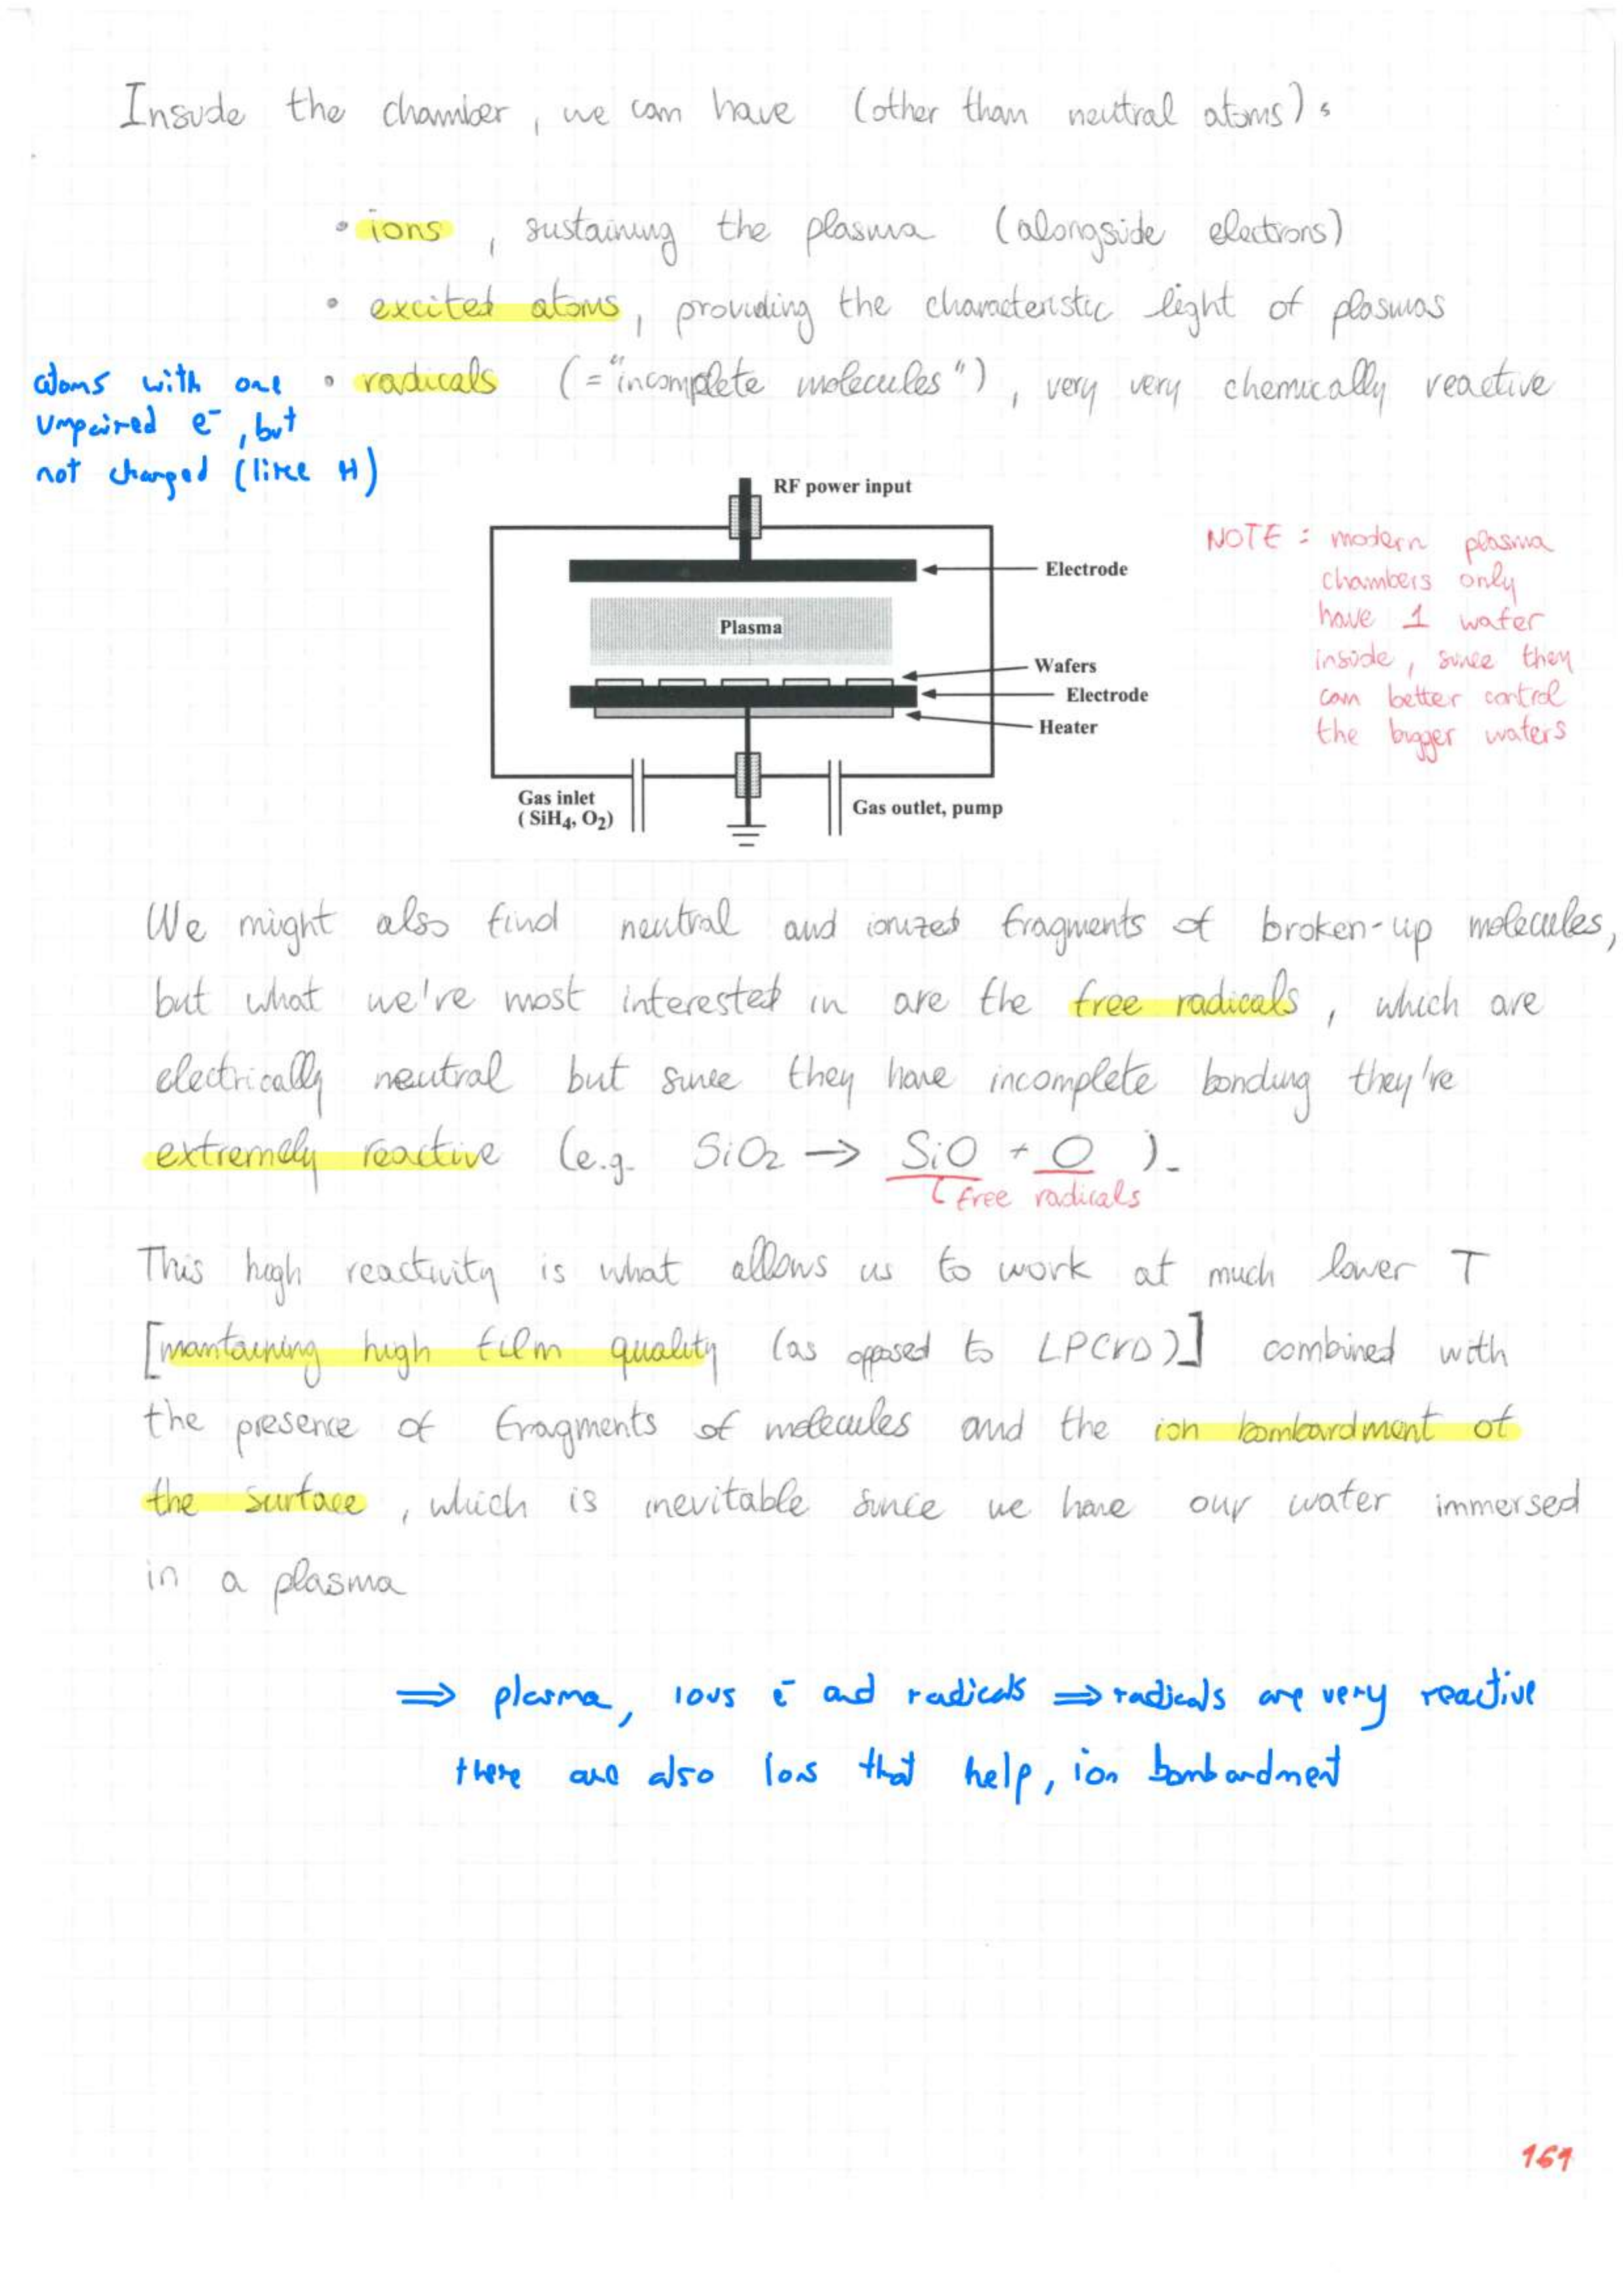 Inside the chamber, we can have (other than neutral atoms):
• ions, sustaining the plasma (alongside electrons)
• excited atoms, providing the characteristic light of plasmas
• radicals (="incomplete molecules"), very very chemically reactive
atoms with one
unpaired e⁻, but
not charged (like H)
RF power input
Electrode
Plasma
Wafers
Electrode
Heater
Gas inlet
(SiH₄, O₂)
Gas outlet, pump
NOTE: modern plasma
chambers only
have 1 wafer
inside, since they
can better control
the bigger wafers
We might also find neutral and ionized fragments of broken-up molecules,
but what we're most interested in are the free radicals, which are
electrically neutral but since they have incomplete bonding they're
extremely reactive (e.g. SiO₂ → SiO + O).
free radicals
This high reactivity is what allows us to work at much lower T
[mantaining high film quality (as opposed to LPCVD)] combined with
the presence of fragments of molecules and the ion bombardment of
the surface, which is inevitable since we have our wafer immersed
in a plasma
⇒ plasma, ions e⁻ and radicals ⇒ radicals are very reactive
there are also ions that help, ion bombardment
161